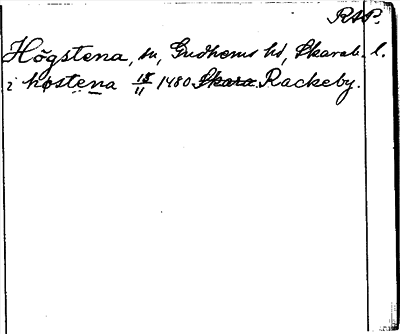 RAP.
Högstena, sn, Gudhems hd, Skarab. l.
i hostena 15/11 1480 Skara Rackeby.